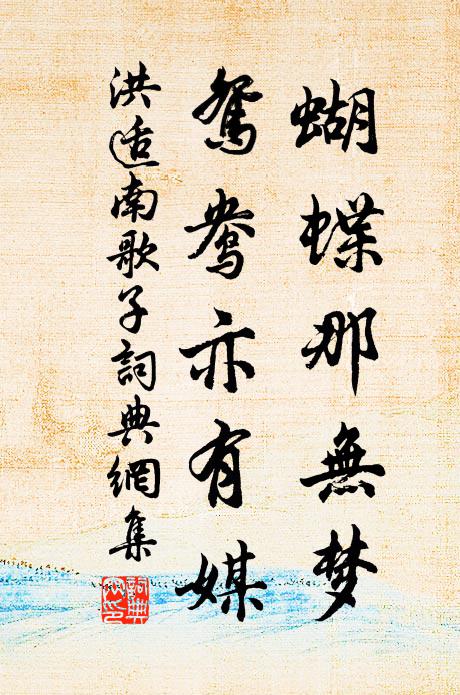 蝴蝶那無梦
鴛鴦亦有媒
洪适南歌子詞典網集